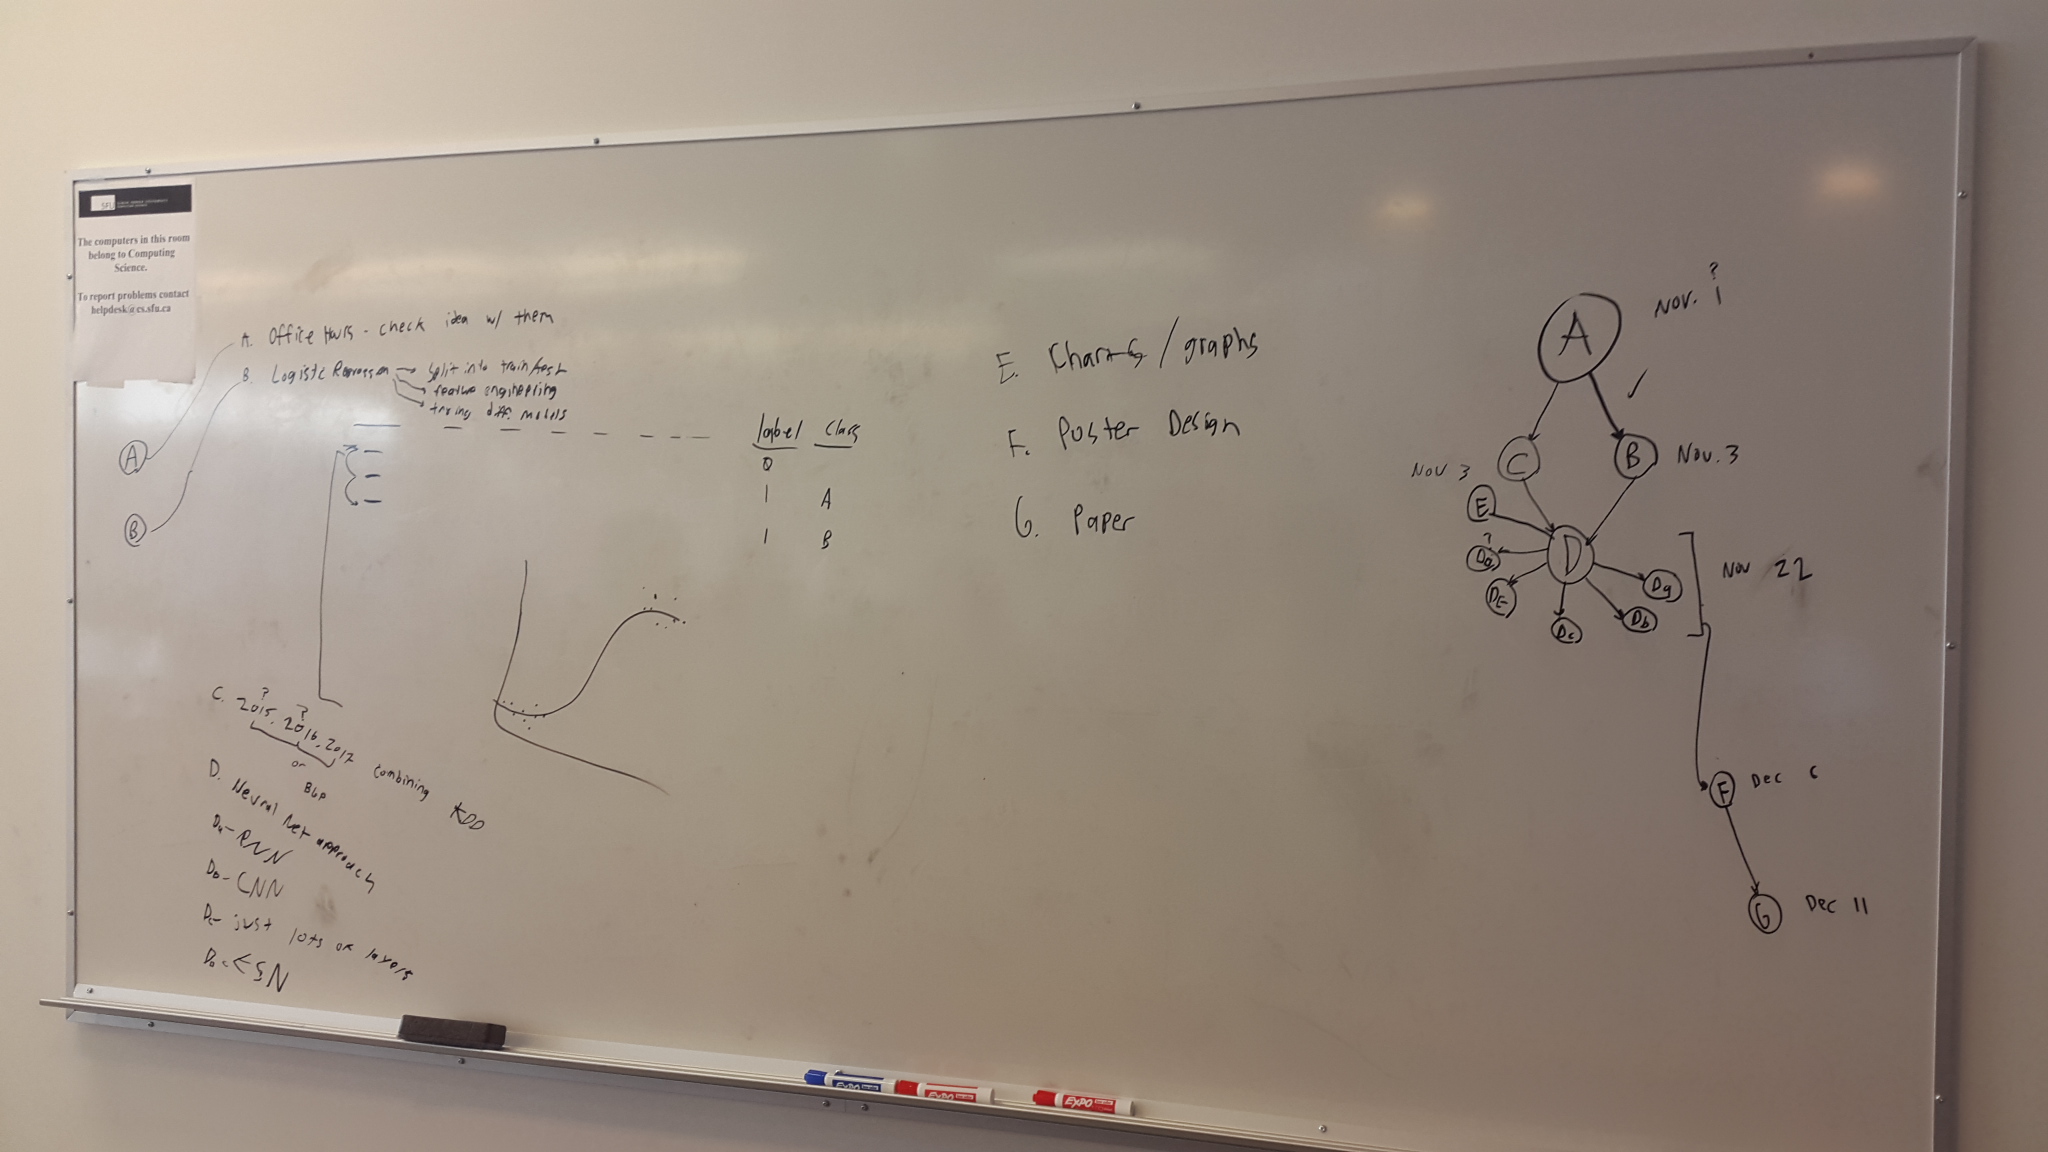 SFU SIMON FRASER UNIVERSITY
The computers in this room
belong to Computing
Science.
To report problems contact
helpdesk@cs.sfu.ca
A. Office Hours - check idea w/ them
B. Logistic Regression → split into train/test
feature engineering
trying diff. models
A
B
label class
0
1 A
1 B
C. 2015, 2016, 2017 combining KDD
?
?
or
D. Neural Net approach
Da - RNN
Db - CNN
Dc - just lots of layers
Dd - ESN
E. Charts / graphs
F. Poster Design
G. Paper
?
Nov. 1
A
✓
Nov 3 C
B Nov. 3
E
D
?
Dd
DE
Dc
Db
Da
Nov 22
F Dec 6
G Dec 11
EXPO
EXPO
EXPO